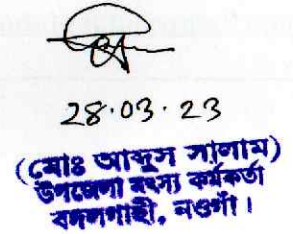 28.03.23
(মোঃ আব্দুস সালাম)
উপজেলা মৎস্য কর্মকর্তা
বদলগাছী, নওগাঁ।